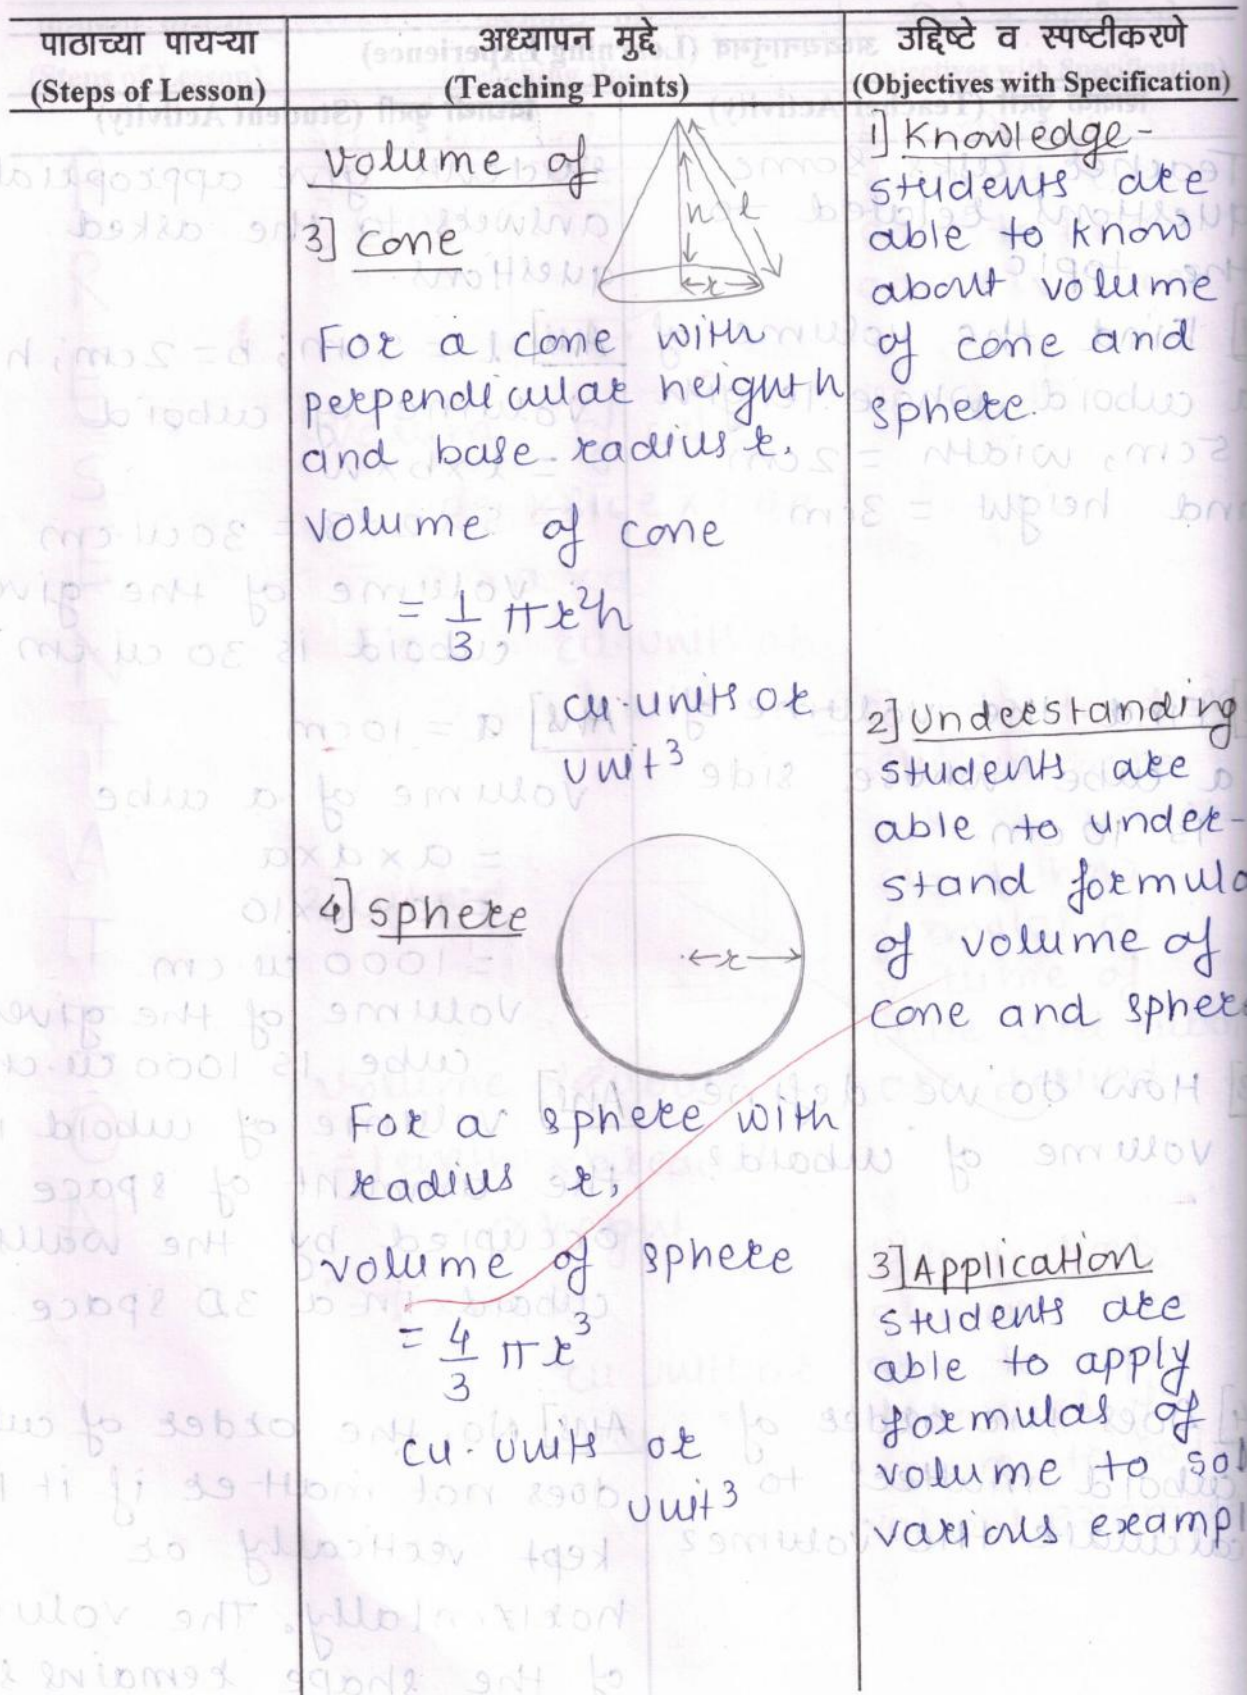 पाठाच्या पायऱ्या
(Steps of Lesson)
अध्यापन मुद्दे
(Teaching Points)
उद्दिष्टे व स्पष्टीकरणे
(Objectives with Specification)
Volume of
3] Cone
h
l
r
For a cone with
perpendicular heignth
and base radius r,
Volume of cone
= 1/3 πr²h
cu. units or
unit³
4] Sphere
r
For a sphere with
radius r,
Volume of sphere
= 4/3 πr³
cu. units or
unit³
1] Knowledge-
students are
able to know
about volume
of cone and
sphere.
2] Understanding
students are
able to under-
stand formula
of volume of
cone and spher
3] Application
students are
able to apply
formulas of
volume to sol
various exampl